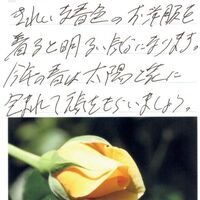 きれいな春色のお洋服を
着ると明るい気になります。
今年の春は太陽と花に
包まれて頂をもらいましょう。